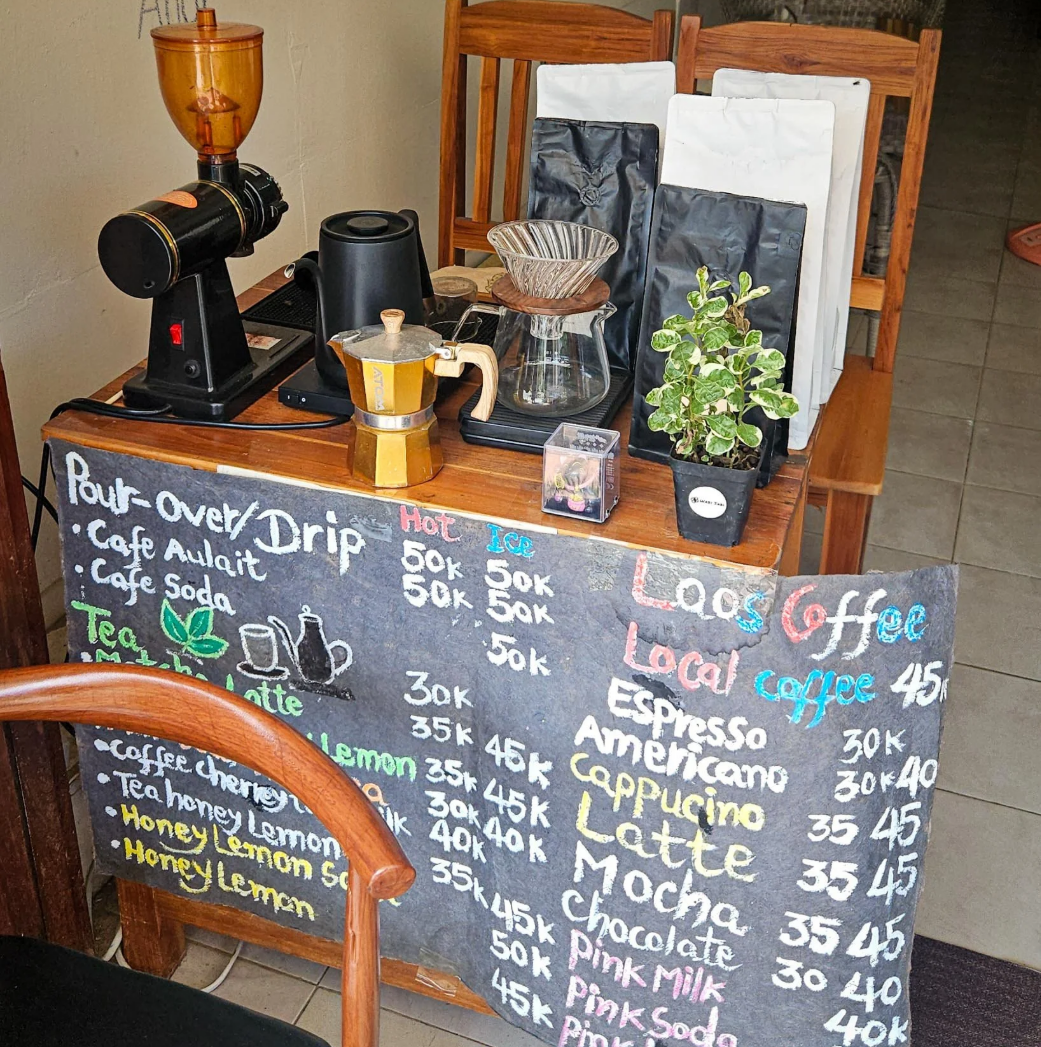 Pour-Over/Drip Hot Ice
• Cafe Aulait 50K 50K
• Cafe Soda 50K 50K
Tea 50K
• Matcha Latte 30K
35K
Lemon 45K
• Coffee cherry 35K 45K
• Tea honey Lemon 30K 40K
• Honey Lemon 40K
• Honey Lemon 35K
45K
50K
45K
Laos Coffee
Local coffee 45K
Espresso 30K
Americano 30K 40
Cappucino 35 45
Latte 35 45
Mocha 35 45
Chocolate 30 40
Pink Milk 40K
Pink Soda
Pink